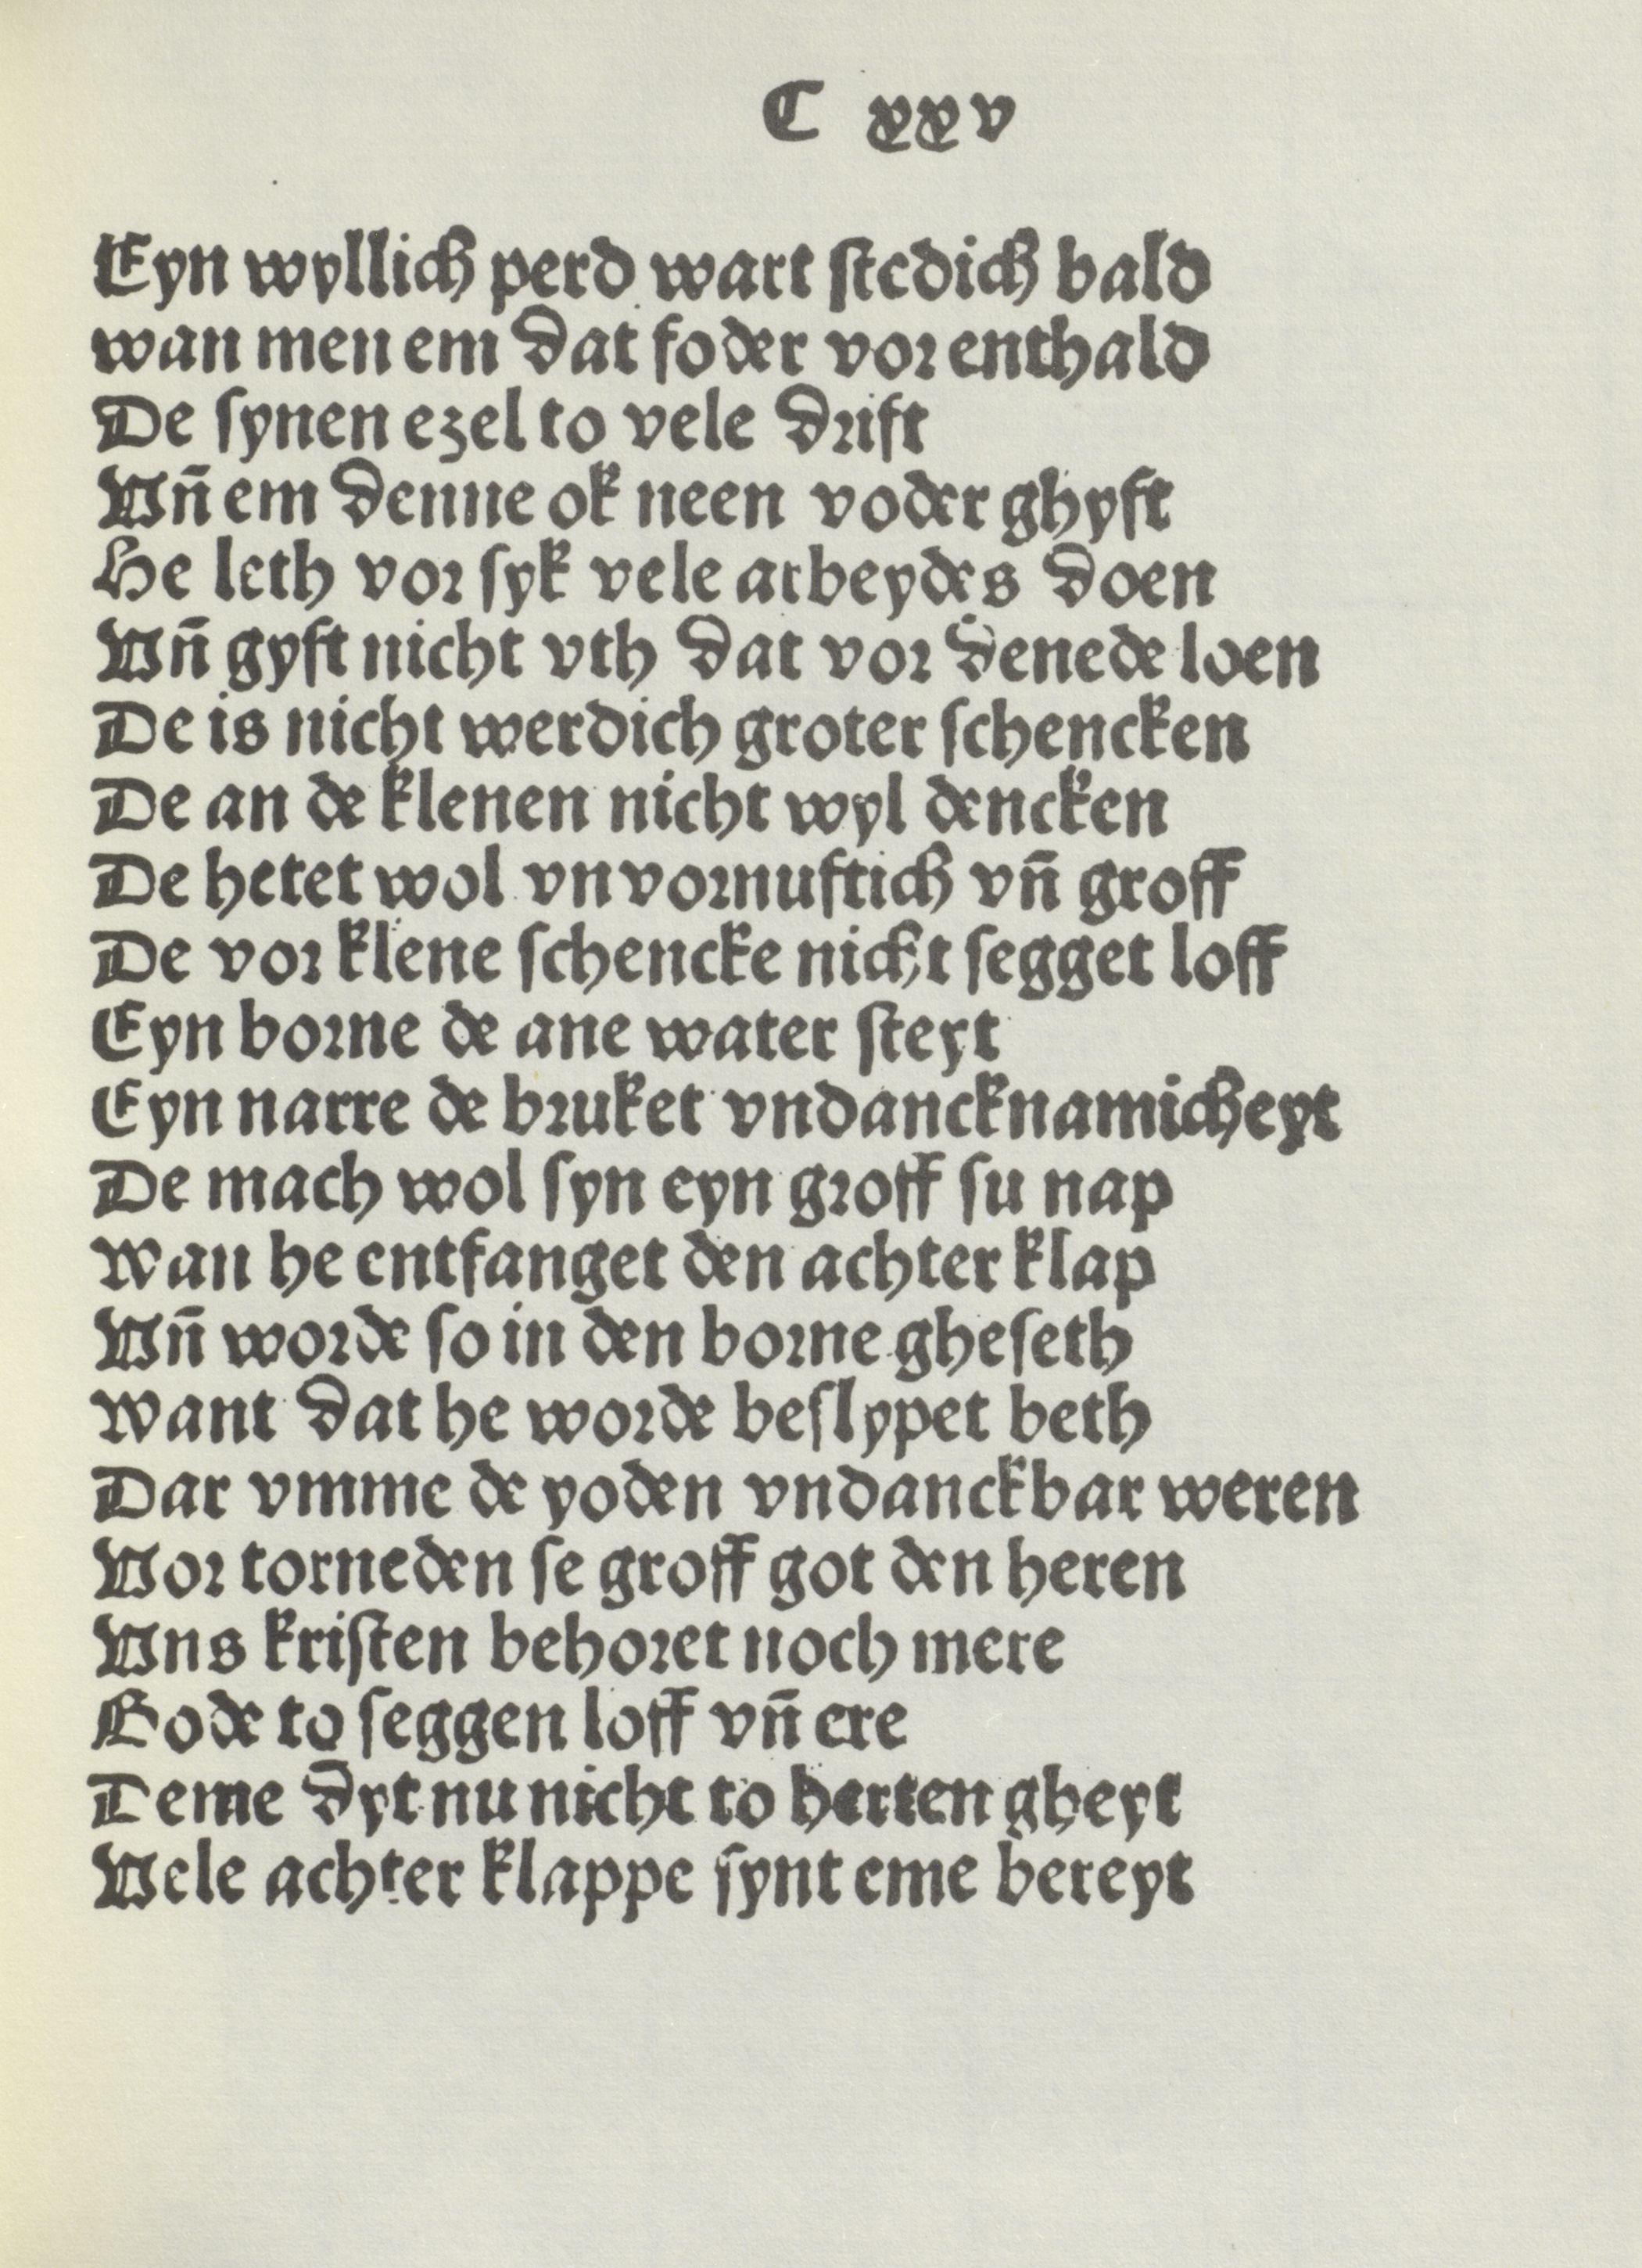 C xxv
Eyn wyllich perd wart stedich bald
wan men em dat foder vor enthald
De synen ezel to vele drift
Vñ em denne ok neen voder ghyft
He leth vor syk vele arbeydes doen
Vñ gyft nicht vth dat vor denede loen
De is nicht werdich groter schencken
De an de klenen nicht wyl dencken
De hetet wol vnvornuftich vñ groff
De vor klene schencke nicht segget loff
Eyn borne de ane water steyt
Eyn narre de bruket vndancknamicheyt
De mach wol syn eyn groff su nap
Wan he entfanget den achter klap
Vñ worde so in den borne gheseth
Want dat he worde beslypet beth
Dar vmme de yoden vndanckbar weren
Vor torneden se groff got den heren
Vns kristen behoret noch mere
Gode to seggen loff vñ ere
Deme dyt nu nicht to herten gheyt
Vele achter klappe synt eme bereyt